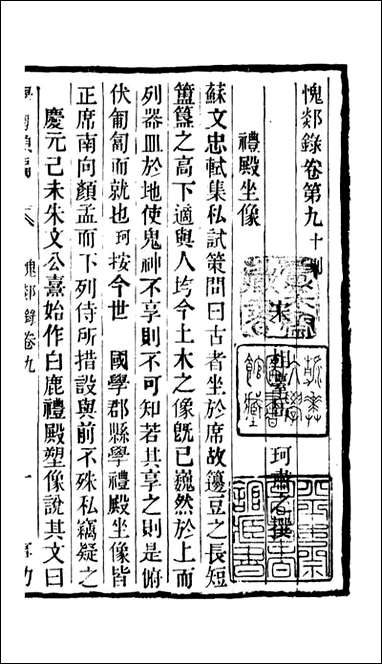 愧郯錄卷第九十則
宋 相臺岳 珂肅之撰
禮殿坐像
蘇文忠軾集私試策問曰古者坐於席故籩豆之長短
簠簋之高下適與人均今土木之像旣已巍然於上而
列器皿於地使鬼神不享則不可知若其享之則是俯
伏匍匐而就也珂按今世 國學郡縣學禮殿坐像皆
正席南向顏孟而下列侍所措設與前不殊私竊疑之
慶元己未朱文公熹始作白鹿禮殿塑像說其文曰
愧郯錄卷九
一